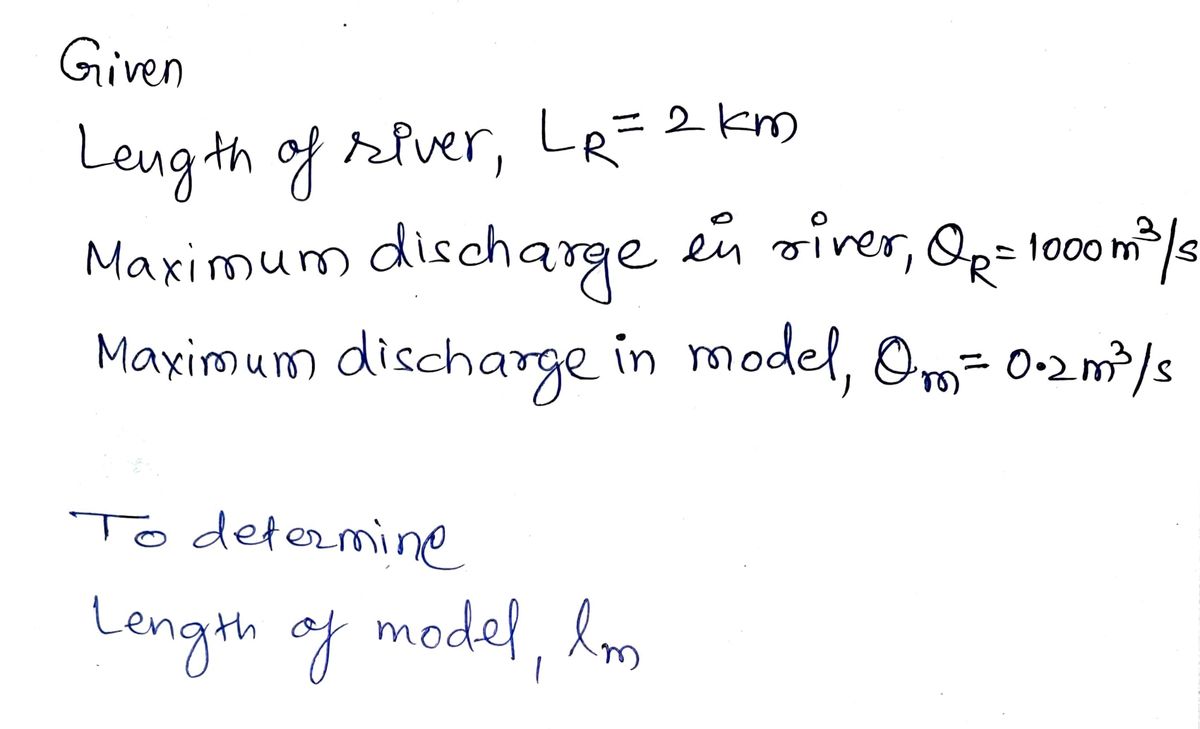 Given
Length of river, L_R = 2 km
Maximum discharge in river, Q_R = 1000 m³/s
Maximum discharge in model, Q_m = 0.2 m³/s
To determine
Length of model, l_m